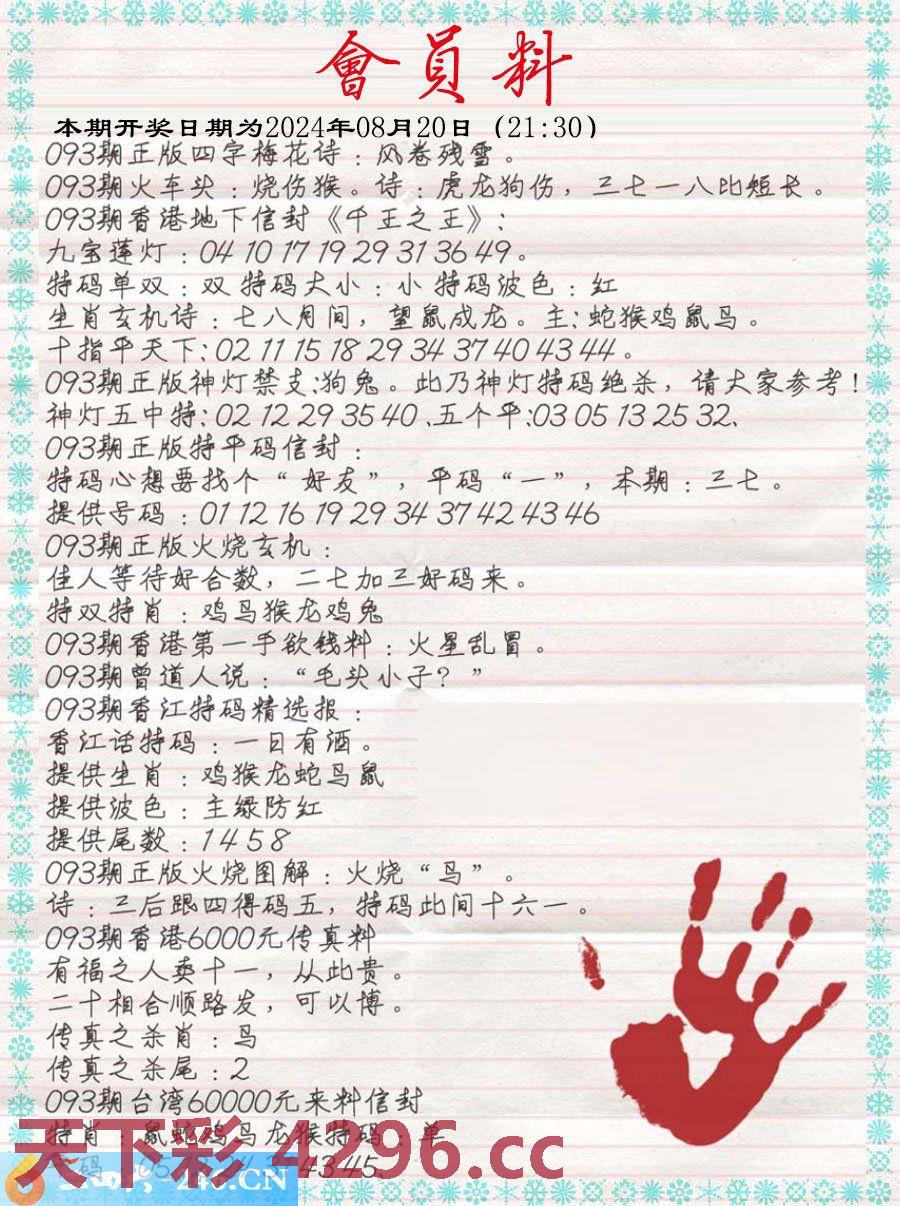 會員料
本期开奖日期为2024年08月20日（21:30）
093期正版四字梅花诗：风卷残雪。
093期火车头：烧伤猴。诗：虎龙狗伤，三七一八比短长。
093期香港地下信封《千王之王》：
九宝莲灯：04 10 17 19 29 31 36 49。
特码单双：双 特码大小：小 特码波色：红
生肖玄机诗：七八月间，望鼠成龙。主：蛇猴鸡鼠马。
十指平天下：02 11 15 18 29 34 37 40 43 44。
093期正版神灯禁支:狗兔。此乃神灯特码绝杀，请大家参考！
神灯五中特：02 12 29 35 40 、五个平:03 05 13 25 32、
093期正版特平码信封：
特码心想要找个“好友”，平码“一”，本期：三七。
提供号码：01 12 16 19 29 34 37 42 43 46
093期正版火烧玄机：
佳人等待好合数，二七加三好码来。
特双特肖：鸡马猴龙鸡兔
093期香港第一手欲钱料：火星乱冒。
093期曾道人说：“毛头小子？”
093期香江特码精选报：
香江话特码：一日有酒。
提供生肖：鸡猴龙蛇马鼠
提供波色：主绿防红
提供尾数：1 4 5 8
093期正版火烧图解：火烧“马”。
诗：三后跟四得码五，特码此间十六一。
093期香港6000元传真料
有福之人卖十一，从此贵。
二十相合顺路发，可以博。
传真之杀肖：马
传真之杀尾：2
093期台湾60000元来料信封
特肖：鼠蛇鸡马龙猴特码：单
天下彩 4296.cc
43 45、
246.CN